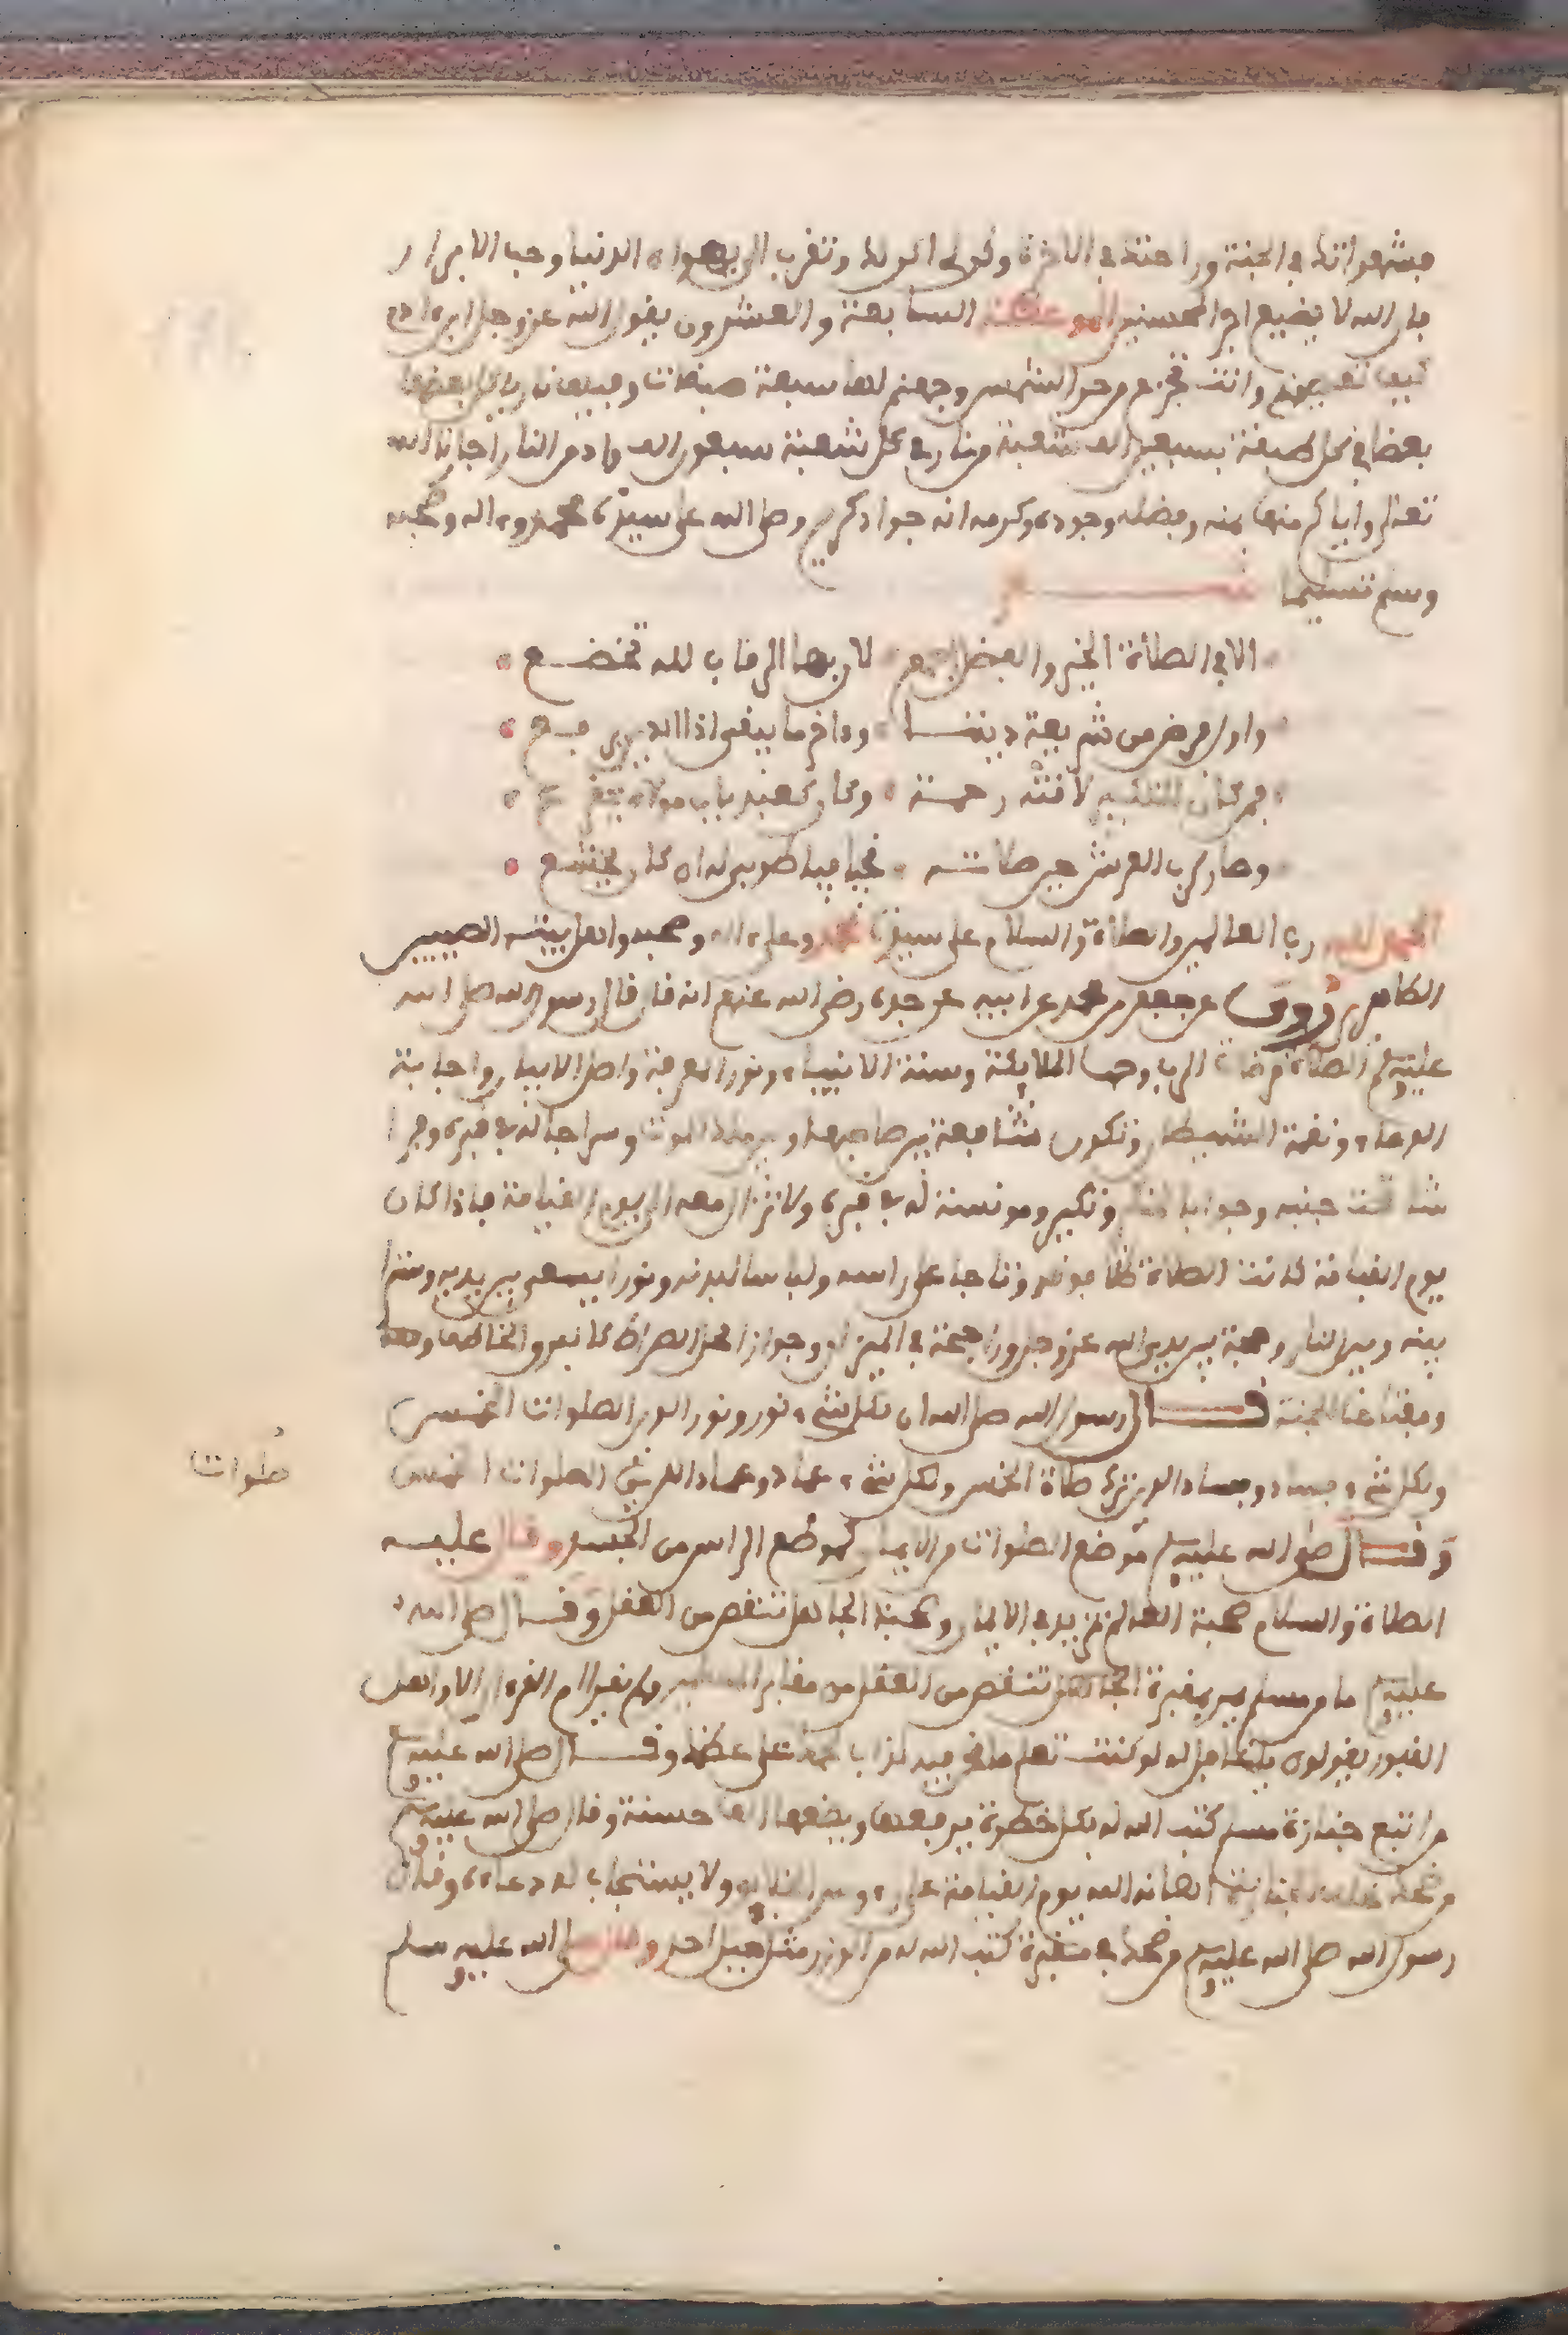 فشهواتك في الجنة وراحتك في الاخرة وتقرب الي بهوان الدنيا وحب الابرار
فان الله لا يضيع اجر المحسنين الموعظة السابعة والعشرون يقول الله عز وجل ابن ادم
كيف تعصيني وانت تجزع من حر الشمس وجهنم لها سبعة طبقات وفيها نيران ياكل بعضها
بعضا في كل طبقة سبعين الف شعبة من نار في كل شعبة سبعون الف واد من النار اجارنا الله
تعلى واياكم منها بمنه وفضله وجوده وكرمه انه جواد كريم وصلى الله على سيدنا محمد واله وصحبه
وسلم تسليما
الا في الصلاة الخير والفضل اجمع لان بها الرقاب لله تخضع
واول فرض من شريعة ديننا وءاخر ما يبقى اذا الدين يرفع
فمن كان للتكبير لاقته رحمة وكان كعبد باب مولاه يقرع
وصار لرب العرش حين صلاته نجيا فيا طوبى له ان كان يخشع
الحمد لله رب العالمين والصلاة والسلام على سيدنا محمد وعلى ءاله وصحبه واهل بيته الطيبين
الطاهرين روي عن جعفر بن محمد عن ابيه عن جده رضي الله عنهم انه قال قال رسول الله صلى الله
عليه وسلم الصلاة مرضات الرب وحب الملائكة وسنة الانبياء ونور المعرفة واصل الايمان واجابة
الدعاء ونقمة الشيطان وتكون شافعة بين صاحبها وبين ملك الموت وسراجا له في قبره وفرا
شا تحت جنبه وجوابا لمنكر ونكير ومونسة له في قبره ولا تزال معه الى يوم القيامة فاذا كان
يوم القيامة كانت الصلاة ظلا فوقه وتاجا على راسه ولباسا لبدنه ونورا يسعى بين يديه وسترا
بينه وبين النار وحجة بين يدي الله عز وجل وراجحة في الميزان وجوازا على الصراط
ومفتاحا للجنة قـــال رسول الله صلى الله ان لكل شيء نور ونور الدين الصلوات الخمس
ولكل شيء فساد وفساد الدين ترك صلاة الخمس ولكل شيء عماد وعماد الدين الصلوات الخمس
صلوات
وقـــال صلى الله عليه وسلم موضع الصلوات من الايمان كموضع الراس من الجسد وقال عليه
الصلاة والسلام صحبة العالم تزيد في الايمان وصحبة الجاهل تنقص من العقل وقـــال صلى الله
عليه وسلم ما من مسلم يمر بمقبرة من مقابر المسلمين الا واهل
القبور يقولون يا غافل لو كنت تعلم ما نحن فيه لذاب لحمك على عظمك وقـــال صلى الله عليه وسلم
من اتبع جنازة مسلم كتب الله له بكل خطوة يرفعها ويضعها الف حسنة وقال صلى الله عليه وسلم
من ضحك خلف الجنازة اهانه الله يوم القيامة على رءوس الخلايق ولا يستجاب له دعاءه وقال
رسول الله صلى الله عليه وسلم من ضحك في مقبرة كتب الله له من الوزر مثل جبل احد وقال صلى الله عليه وسلم